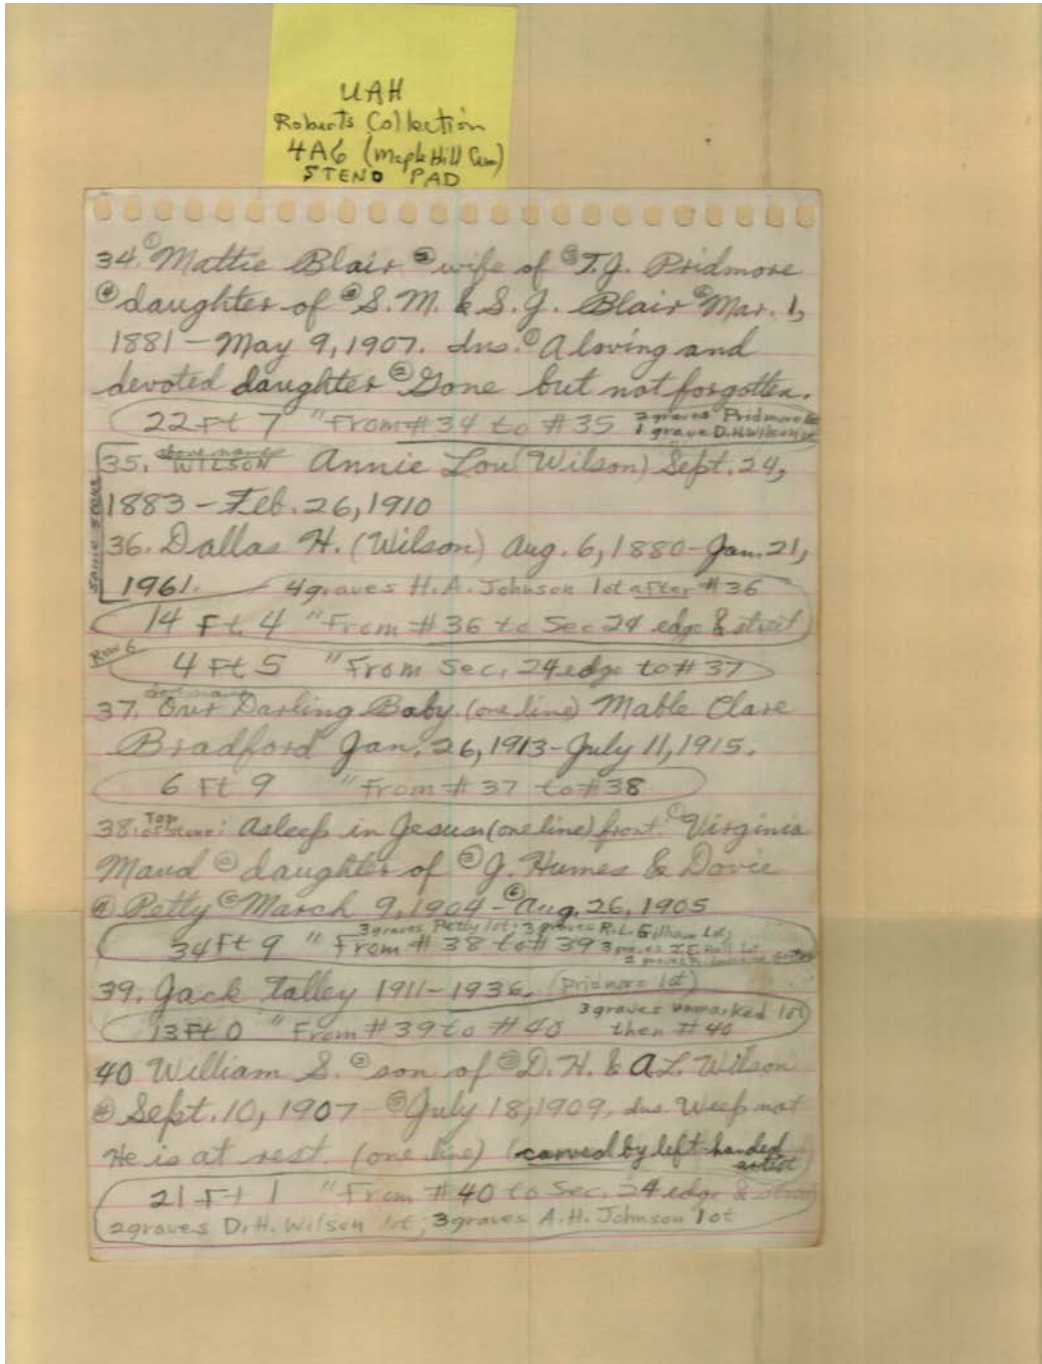 UAH
Roberts Collection
4A6 (Maple Hill Cem)
STENO PAD
34. ① Mattie Blair ② wife of ③ T.J. Pridmore
④ daughter of ⑤ S.M. & S.J. Blair ⑥ Mar. 1,
1881 – May 9, 1907. dns. ① A loving and
devoted daughter ② Gone but not forgotten.
22 Ft 7 " From #34 to #35 2 graves Pridmore lot
1 grave D.H. Wilson lot
same stone
35. WILSON Annie Lou (Wilson) Sept. 24,
1883 – Feb. 26, 1910
36. Dallas H. (Wilson) Aug. 6, 1880 – Jan. 21,
1961. 4 graves H.A. Johnson lot after #36
14 Ft 4 " From #36 to Sec 24 edge & street
Row 6
4 Ft 5 " From Sec. 24 edge to #37
37. Our Darling Baby. (one line) Mable Clare
Bradford Jan. 26, 1913 – July 11, 1915.
6 Ft 9 " From #37 to #38
38. Top of stone: Asleep in Jesus (one line) front. ① Virginia
Maud ② daughter of ③ J. Humes & Dovie
④ Petty ⑤ March 9, 1904 – ⑥ Aug. 26, 1905
3 graves Petty lot; 3 graves R.L. Gilham Lot;
34 Ft 9 " From #38 to #39 3 graves I.E. Hall Lot
2 graves
39. Jack Talley 1911 – 1936. (Pridmore lot)
3 graves unmarked lot
13 Ft 0 " From #39 to #40 then #40
40 William S. ② son of ③ D.H. & A.L. Wilson
④ Sept. 10, 1907 – ⑤ July 18, 1909. dns. Weep not
He is at rest. (one line) (carved by left-handed
artist)
21 Ft 1 " From #40 to Sec. 24 edge & street
2 graves D.H. Wilson lot; 3 graves A.H. Johnson lot